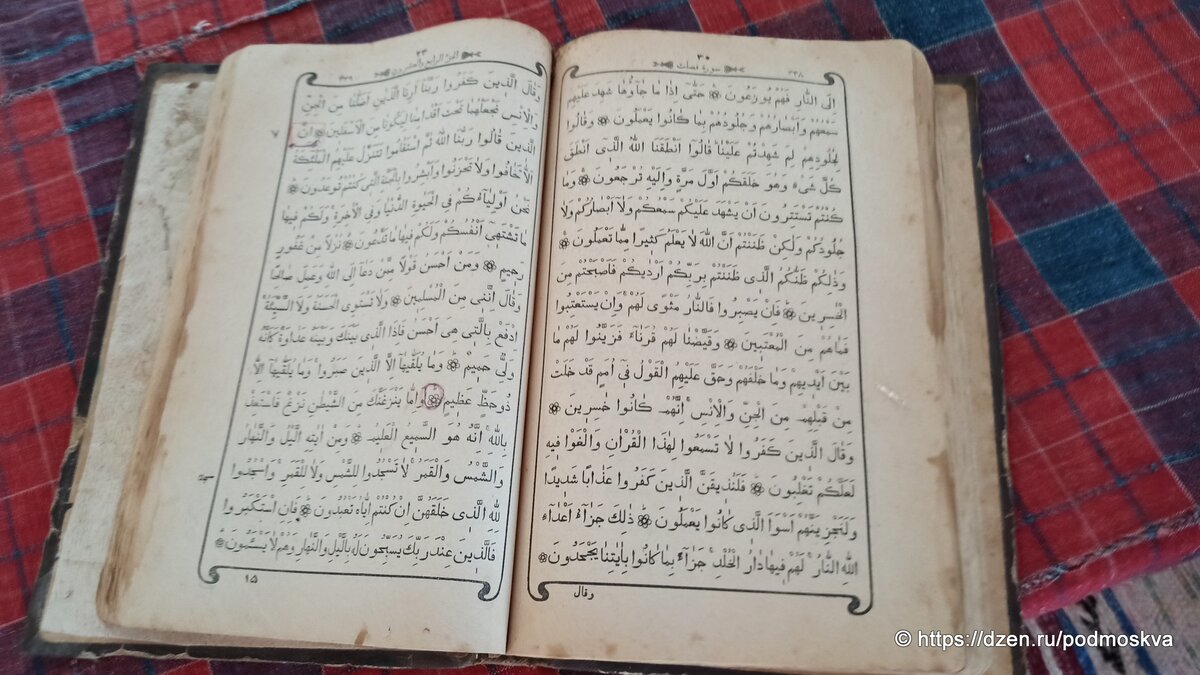 ٣٠
٣٣٨ سورة فصلت
اِلَى النَّارِ فَهُمْ يُوزَعُونَ حَتّٰى اِذَا مَا جَآؤُهَا شَهِدَ عَلَيْهِمْ
سَمْعُهُمْ وَاَبْصَارُهُمْ وَجُلُودُهُمْ بِمَا كَانُوا يَعْمَلُونَ وَقَالُوا
لِجُلُودِهِمْ لِمَ شَهِدْتُمْ عَلَيْنَا قَالُوا اَنْطَقَنَا اللّٰهُ الَّذٖى اَنْطَقَ
كُلَّ شَیْءٍ وَهُوَ خَلَقَكُمْ اَوَّلَ مَرَّةٍ وَاِلَيْهِ تُرْجَعُونَ وَمَا
كُنْتُمْ تَسْتَتِرُونَ اَنْ يَشْهَدَ عَلَيْكُمْ سَمْعُكُمْ وَلَآ اَبْصَارُكُمْ وَلَا
جُلُودُكُمْ وَلٰكِنْ ظَنَنْتُمْ اَنَّ اللّٰهَ لَا يَعْلَمُ كَثٖيرًا مِمَّا تَعْمَلُونَ
وَذٰلِكُمْ ظَنُّكُمُ الَّذٖى ظَنَنْتُمْ بِرَبِّكُمْ اَرْدٰيكُمْ فَاَصْبَحْتُمْ مِنَ
الْخَاسِرٖينَ فَاِنْ يَصْبِرُوا فَالنَّارُ مَثْوًى لَهُمْ وَاِنْ يَسْتَعْتِبُوا
فَمَا هُمْ مِنَ الْمُعْتَبٖينَ وَقَيَّضْنَا لَهُمْ قُرَنَآءَ فَزَيَّنُوا لَهُمْ مَا
بَيْنَ اَيْدٖيهِمْ وَمَا خَلْفَهُمْ وَحَقَّ عَلَيْهِمُ الْقَوْلُ فٖٓى اُمَمٍ قَدْ خَلَتْ
مِنْ قَبْلِهِمْ مِنَ الْجِنِّ وَالْاِنْسِ اِنَّهُمْ كَانُوا خَاسِرٖينَ
وَقَالَ الَّذٖينَ كَفَرُوا لَا تَسْمَعُوا لِهٰذَا الْقُرْاٰنِ وَالْغَوْا فٖيهِ
لَعَلَّكُمْ تَغْلِبُونَ فَلَنُذٖيقَنَّ الَّذٖينَ كَفَرُوا عَذَابًا شَدٖيدًا
وَلَنَجْزِيَنَّهُمْ اَسْوَاَ الَّذٖى كَانُوا يَعْمَلُونَ ذٰلِكَ جَزَآءُ اَعْدَآءِ
اللّٰهِ النَّارُ لَهُمْ فٖيهَا دَارُ الْخُلْدِ جَزَآءً بِمَا كَانُوا بِاٰيَاتِنَا يَجْحَدُونَ
وقال
٢٣
الجزء الرابع والعشرون
وَقَالَ الَّذٖينَ كَفَرُوا رَبَّنَآ اَرِنَا الَّذَيْنِ اَضَلَّانَا مِنَ الْجِنِّ
وَالْاِنْسِ نَجْعَلْهُمَا تَحْتَ اَقْدَامِنَا لِيَكُونَا مِنَ الْاَسْفَلٖينَ اِنَّ
الَّذٖينَ قَالُوا رَبُّنَا اللّٰهُ ثُمَّ اسْتَقَامُوا تَتَنَزَّلُ عَلَيْهِمُ الْمَلٰٓئِكَةُ
اَلَّا تَخَافُوا وَلَا تَحْزَنُوا وَاَبْشِرُوا بِالْجَنَّةِ الَّتٖى كُنْتُمْ تُوعَدُونَ
نَحْنُ اَوْلِيَآؤُكُمْ فِى الْحَيٰوةِ الدُّنْيَا وَفِى الْاٰخِرَةِ وَلَكُمْ فٖيهَا
مَا تَشْتَهٖٓى اَنْفُسُكُمْ وَلَكُمْ فٖيهَا مَا تَدَّعُونَ نُزُلًا مِنْ غَفُورٍ
رَحٖيمٍ وَمَنْ اَحْسَنُ قَوْلًا مِمَّنْ دَعَآ اِلَى اللّٰهِ وَعَمِلَ صَالِحًا
وَقَالَ اِنَّنٖى مِنَ الْمُسْلِمٖينَ وَلَا تَسْتَوِى الْحَسَنَةُ وَلَا السَّيِّئَةُ
اِدْفَعْ بِالَّتٖى هِىَ اَحْسَنُ فَاِذَا الَّذٖى بَيْنَكَ وَبَيْنَهُ عَدَاوَةٌ كَاَنَّهُ
وَلِىٌّ حَمٖيمٌ وَمَا يُلَقّٰيهَآ اِلَّا الَّذٖينَ صَبَرُوا وَمَا يُلَقّٰيهَآ اِلَّا
ذُو حَظٍّ عَظٖيمٍ وَاِمَّا يَنْزَغَنَّكَ مِنَ الشَّيْطَانِ نَزْغٌ فَاسْتَعِذْ
بِاللّٰهِ اِنَّهُ هُوَ السَّمٖيعُ الْعَلٖيمُ وَمِنْ اٰيَاتِهِ الَّيْلُ وَالنَّهَارُ
وَالشَّمْسُ وَالْقَمَرُ لَا تَسْجُدُوا لِلشَّمْسِ وَلَا لِلْقَمَرِ وَاسْجُدُوا
لِلّٰهِ الَّذٖى خَلَقَهُنَّ اِنْ كُنْتُمْ اِيَّاهُ تَعْبُدُونَ فَاِنِ اسْتَكْبَرُوا
فَالَّذٖينَ عِنْدَ رَبِّكَ يُسَبِّحُونَ لَهُ بِالَّيْلِ وَالنَّهَارِ وَهُمْ لَا يَسْـَٔمُونَ
١٥
٧
© https://dzen.ru/podmoskva